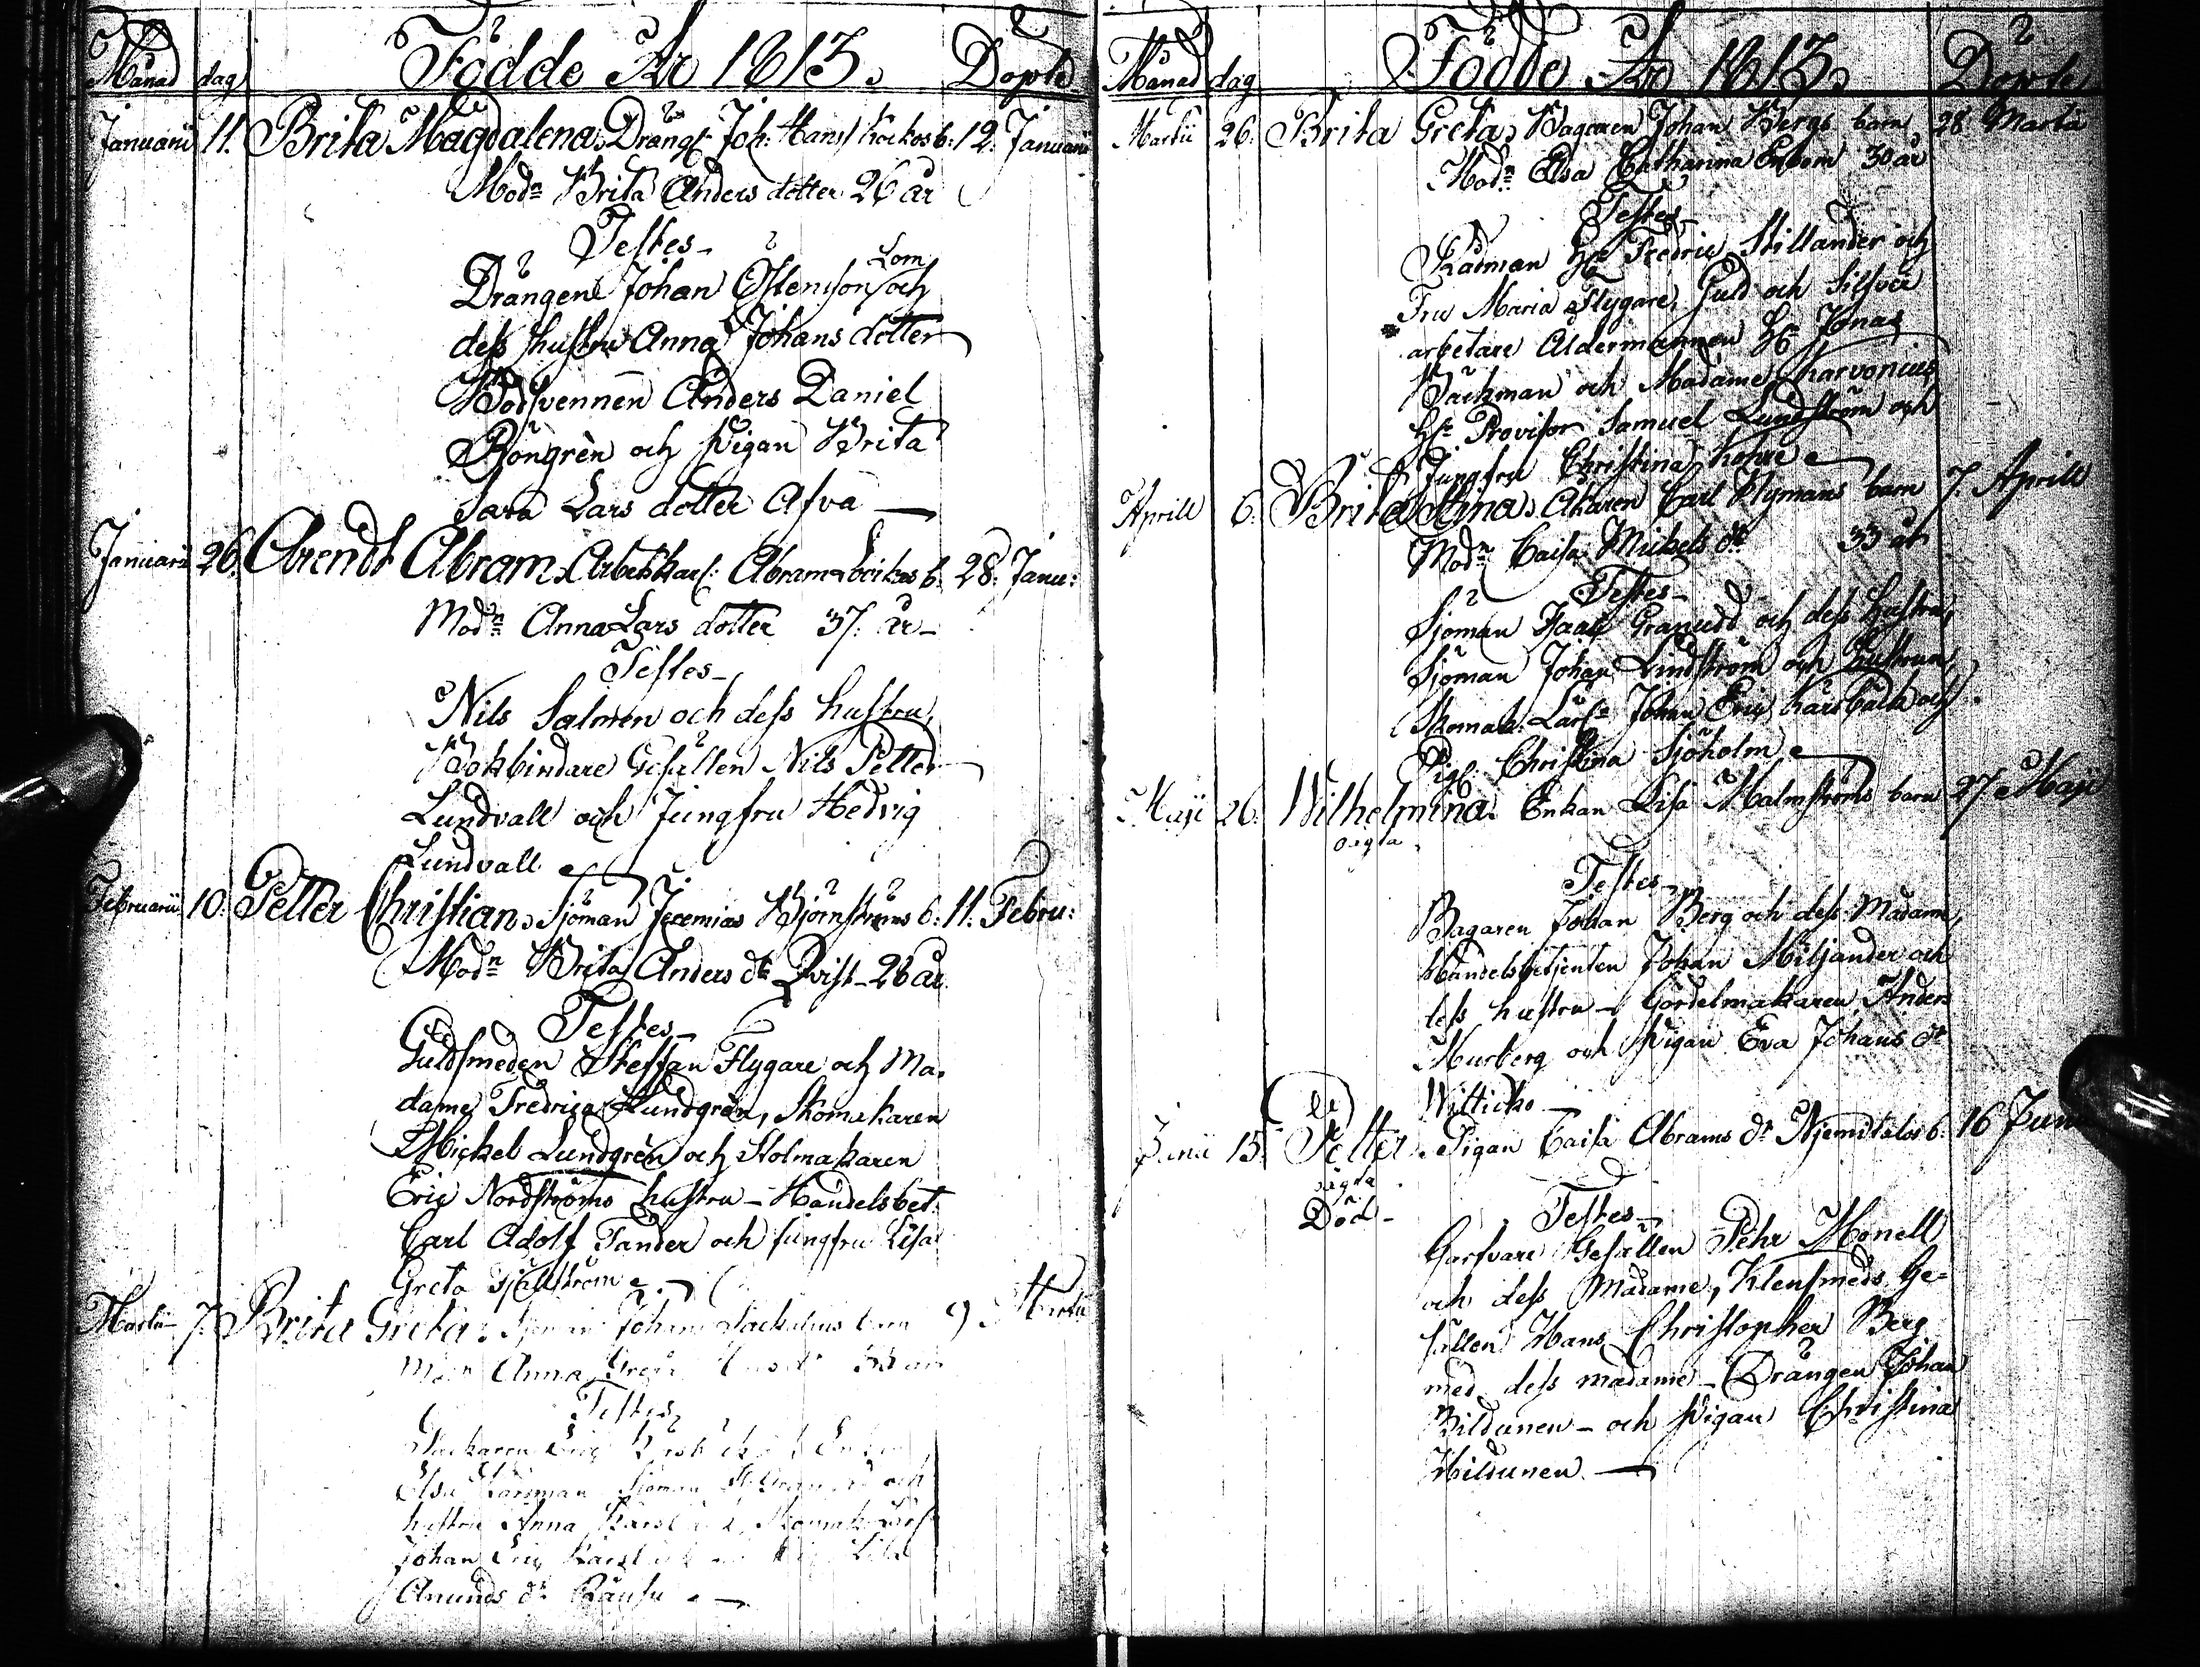 Månad dag Födde År 1813. Döpte
Januarii 11. Brita Magdalena, Dräng: Joh: Hans Kockos b: 12. Januarii
Modn Brita Anders dotter 26 år
Testes
Drängen Johan Östenson Lom och
dess hustru Anna Johans dotter
Bodsvennen Anders Daniel
Röngrèn och Pigan Brita
Sara Lars dotter Afva
Januarii 26. Arendt Abram, Arbetskarl: Abram b: 28: Janu:
Modn Anna Lars dotter 37. år
Testes
Nils Salmèn och dess hustru,
Bokbindare Gesällen Nils Petter
Lundvall och Jungfru Hedvig
Lundvall
Februarii 10. Petter Christian, Sjöman Jeremias Björnströms b: 11. Febru:
Modn Brita Anders dr Qvist 26 år
Testes
Guldsmeden Steffan Flygare och Ma-
dame Fredrica Lundgrèn, Skomakaren
Mickel Lundgrèn och Stolmakaren
Eric Nordströms hustru - Handelsbet:
Carl Adolf Tander och jungfru Lisa
Greta Sjöström
Martii 7. Brita Greta, Sjöman Johan barn 9 Martii
Modn Anna Greta 33 år
Testes
Eric
Elsa Karsman Sjöman och
hustru Anna Skomak: Lärl:
Johan Eric
Amunds dr
Månad dag Födde År 1813. Döpte
Martii 26. Brita Greta, Bagaren Johan Bergs barn 28 Martii
Modn Elsa Catharina Enbom 30 år
Testes
Rådman Hr Fredric Stillander och
Fru Maria Flygare, Guld och Silfver
arbetare Åldermannen Hr Jonas
Backman och Madame Karvonius
Hr Provisor Samuel Lundström och
Jungfru Christina
Aprill 6. Brita Stina, Åkaren Carl Nymans barn 7. Aprill
Modn Caisa Mickels dr 33 år
Testes
Sjöman Isaac Granudd och dess hustru,
Sjöman Johan Lindström och hustrun,
Skomak: Lärl: Johan Eric Karsbäck och
Pig: Christina Sjöholm
Maji 26. Wilhelmina. Enkan Lisa Malmströms barn 27 Maji
oägta
Testes
Bagaren Johan Berg och dess Madame,
Handelsbetjenten Johan Miljander och
dess hustru - Gördelmakaren Anders
Murberg och Pigan Eva Johans dr
Witticko
Junii 15. Petter. Pigan Caisa Abrams dr Njemitalos b: 16 Jun
oägta
Död -
Testes
Garfvare Gesällen Pehr Monell
och dess Madame, Klensmeds Ge-
sällen Hans Christopher Berg
med dess madame - Drängen Johan
Hildunen - och Pigan Christina
Hildunen